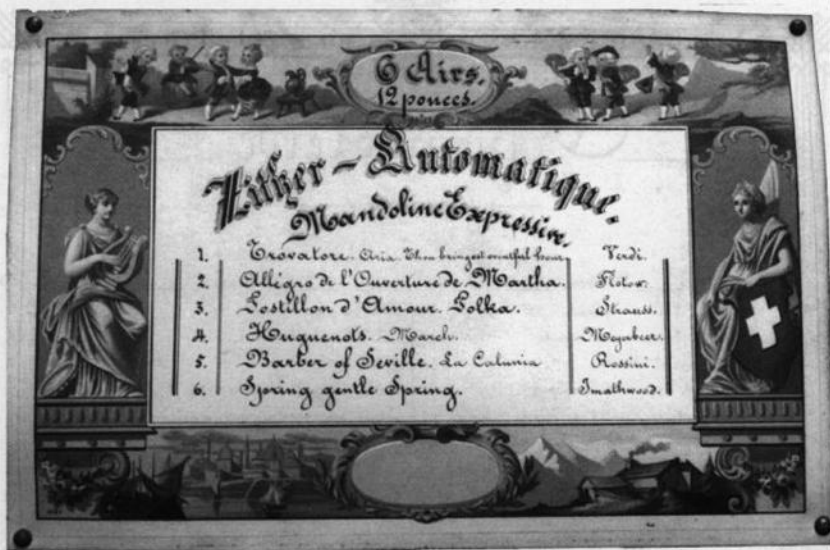 6 Airs.
12 pouces.
Zither - Automatique.
Mandoline Expressive.
1. Trovatore. Aria. Thou bringest eventful hour Verdi.
2. Allegro de l'Ouverture de Martha. Flotow.
3. Postillon d'Amour. Polka. Strauss.
4. Huguenots. March. Meyabeer.
5. Barber of Seville. La Calunia Rossini.
6. Spring gentle Spring. Smathwood.